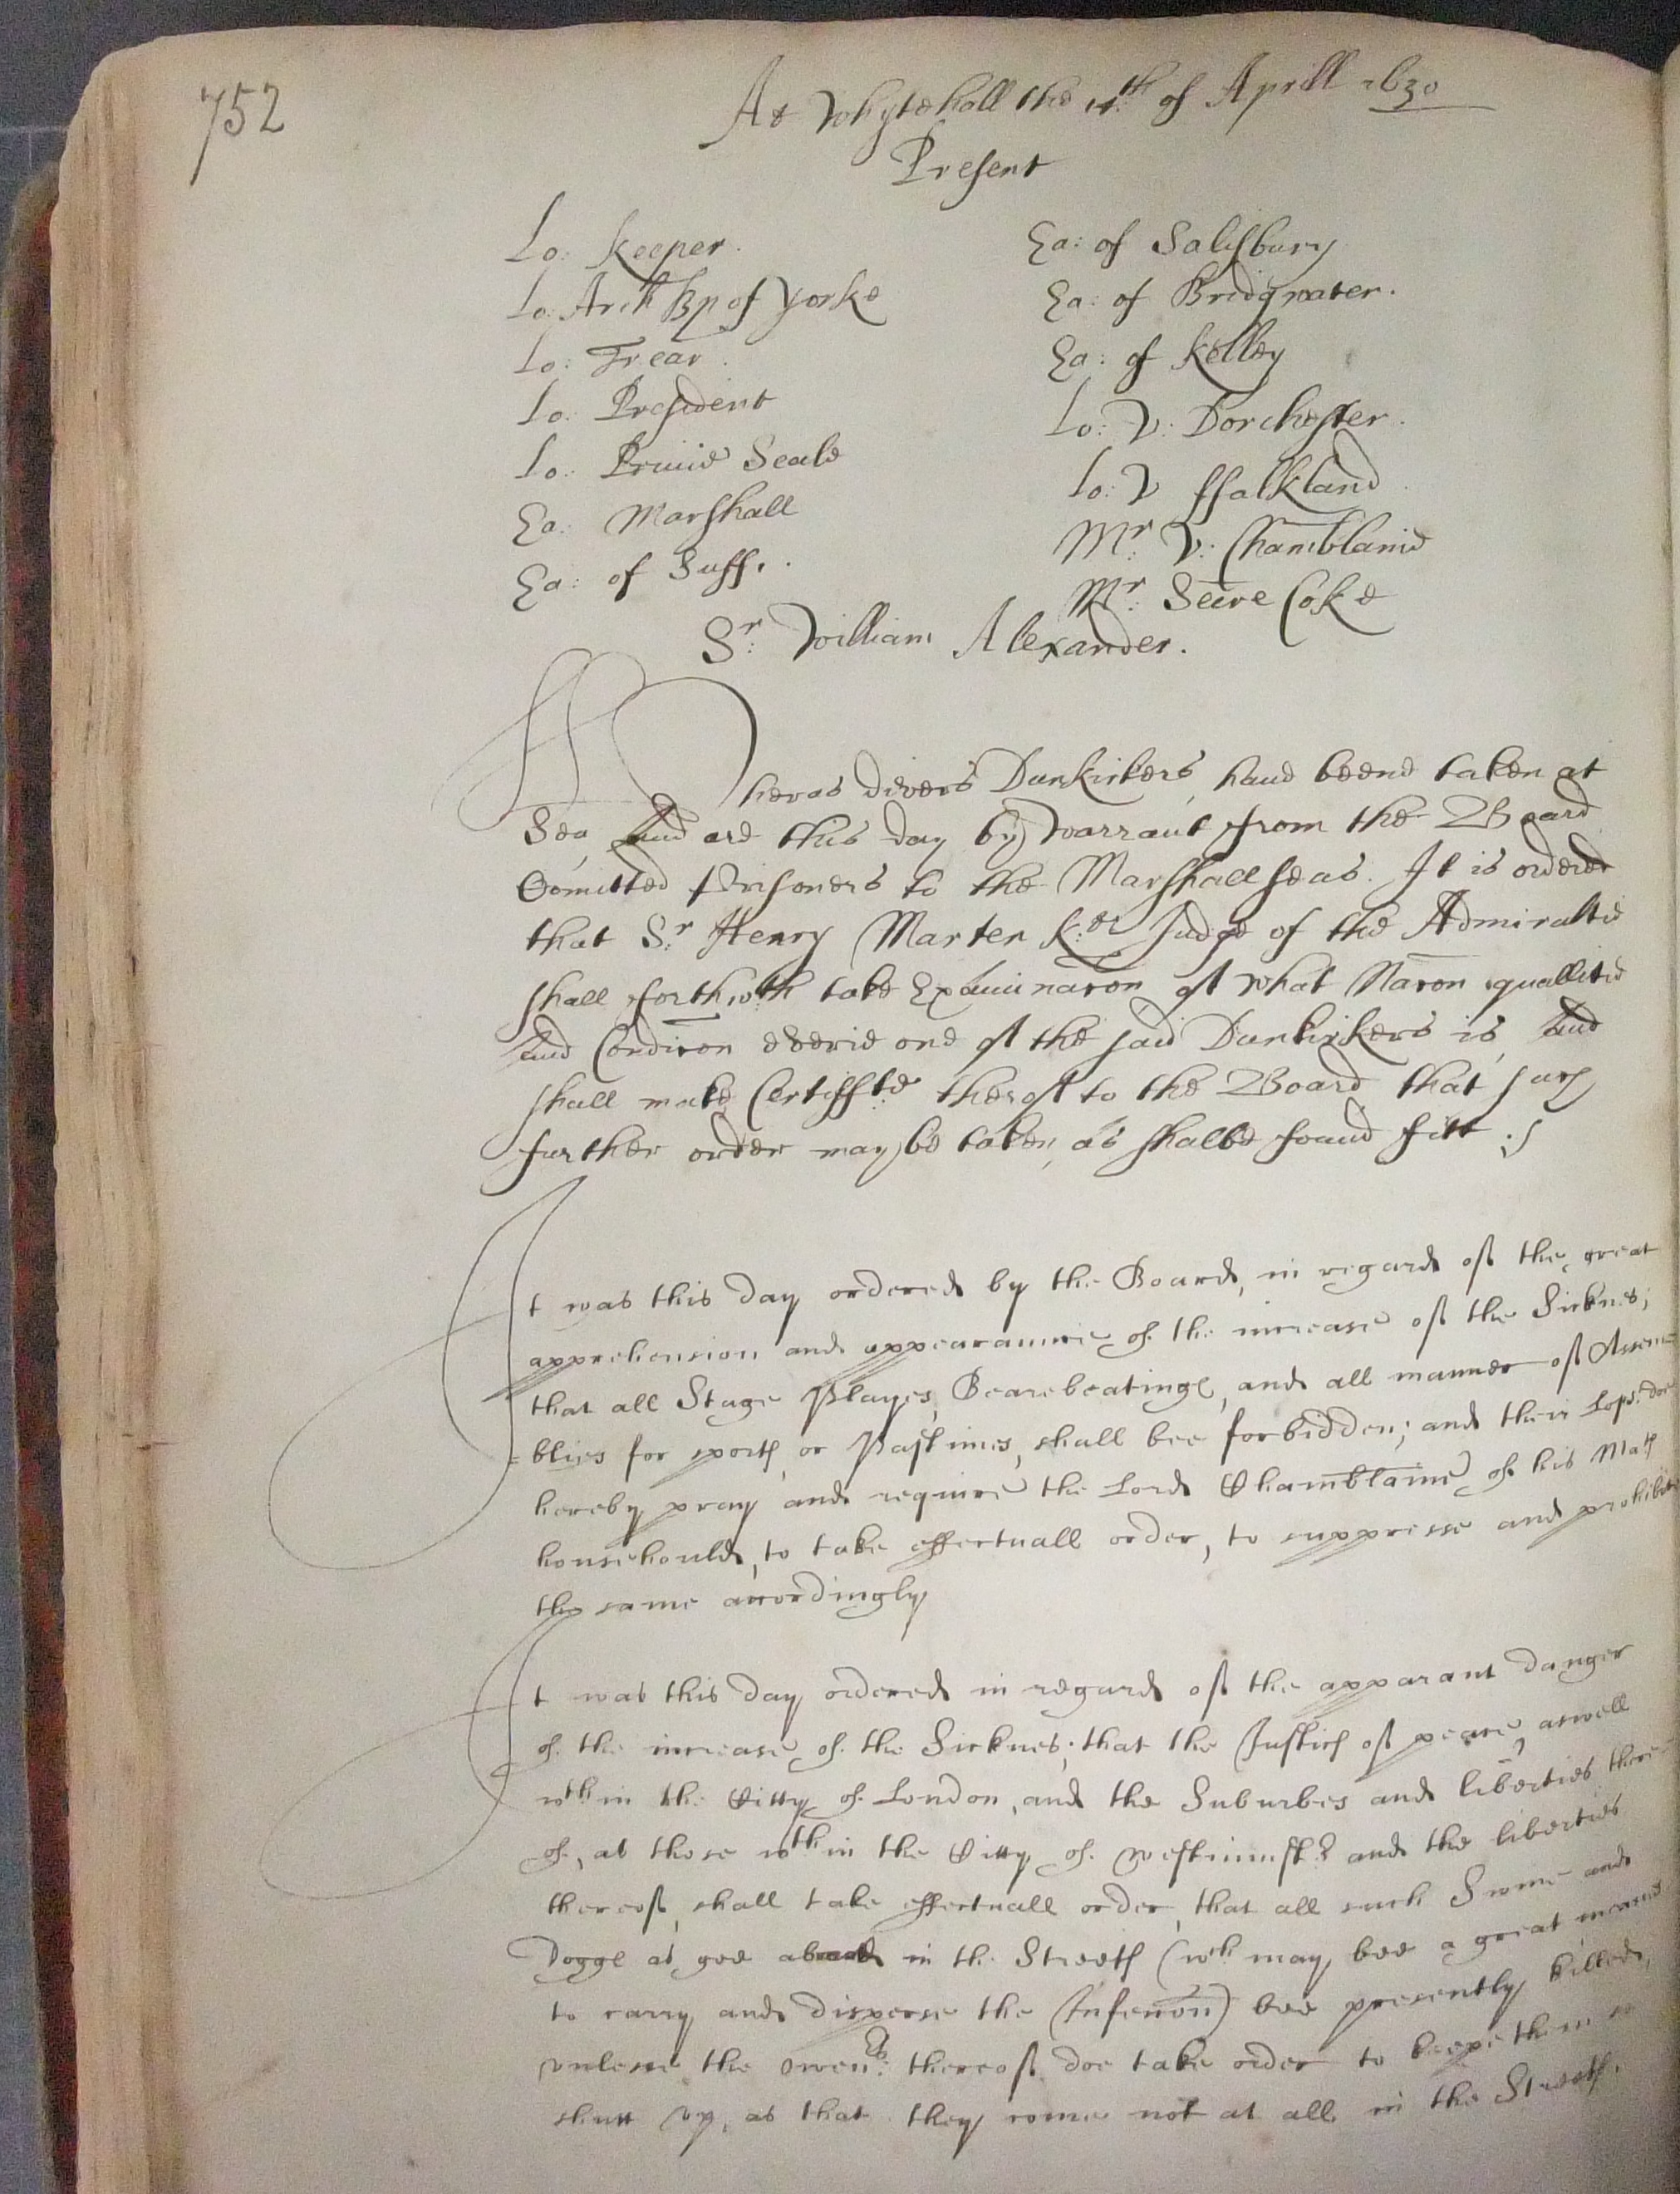 752
At Whytehall the 14th of Aprill 1630
Present
Lo: Keeper.
Lo: Arch Bp of Yorke
Lo: Trear.
Lo: President
Lo: Privie Seale
Ea: Marshall
Ea: of Suff.
Ea: of Salisbury
Ea: of Bridgwater.
Ea: of Kelley
Lo: V: Dorchester.
Lo: V ffalkland
Mr: V: Chamblaine
Mr: Secre Coke
Sr: William Alexander.
Wheras divers Dunkirkers, haue beene taken at
Sea, and are this day by warrant from the Board
Comitted Prisoners to the Marshallseas. It is ordered
that Sr Henry Marten K:t Judge of the Admiraltie
shall forthwth take Examinacon of what Nacon quallitie
and Condicon everie one of the said Dunkirkers is, and
shall make Certifficte therof to the Board that such
further order may be taken, as shalbe found fitt ;/
It was this day ordered by the Board, in regard of the great
apprehension and appearaunce of the increase of the Sicknes;
that all Stage Playes, Bearebeatinges, and all manner of Assem=
=blies for sportes, or Pastimes, shall bee forbidden; and their Lops: doe
hereby pray and require the Lord Chamblaine of his Mats
househould, to take effectuall order, to suppresse and prohibite
the same accordingly
It was this day ordered in regard of the apparant danger
of the increase of the Sicknes; that the Justices of peace, aswell
wthin the Citty of London, and the Suburbes and liberties there=
of, as those wthin the Citty of Westminster and the liberties
thereof, shall take effectuall order, that all such Swine and
Dogges as goe abroad in the Streets (wch may bee a great meanes
to carry and disperse the Infeccon) bee presently killed,
vnlesse the owenrs: thereof doe take order to keepe them so
shutt vp, as that they come not at all in the Streets.